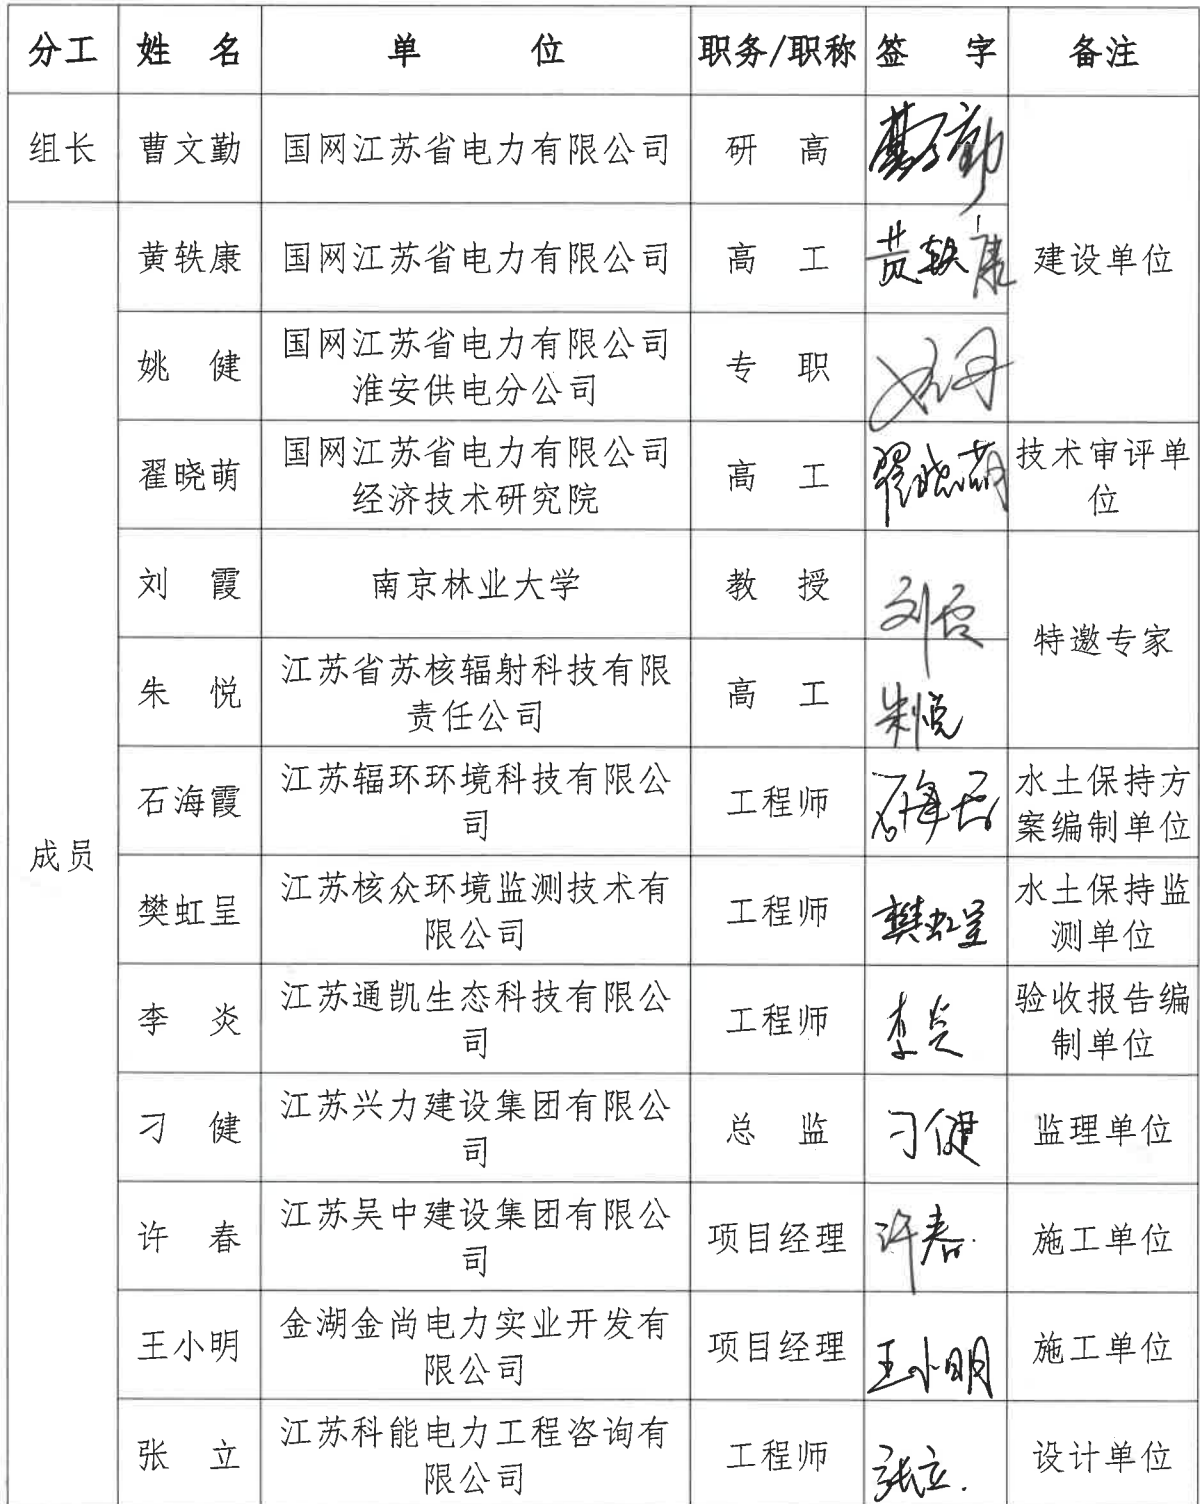 分工 姓 名 单 位 职务/职称 签 字 备注
组长 曹文勤 国网江苏省电力有限公司 研 高 曹文勤
黄轶康 国网江苏省电力有限公司 高 工 黄轶康 建设单位
姚 健 国网江苏省电力有限公司
淮安供电分公司 专 职 姚健
翟晓萌 国网江苏省电力有限公司
经济技术研究院 高 工 翟晓萌 技术审评单
位
刘 霞 南京林业大学 教 授 刘霞
特邀专家
朱 悦 江苏省苏核辐射科技有限
责任公司 高 工 朱悦
石海霞 江苏辐环环境科技有限公
司 工程师 石海霞 水土保持方
案编制单位
成员
樊虹呈 江苏核众环境监测技术有
限公司 工程师 樊虹呈 水土保持监
测单位
李 炎 江苏通凯生态科技有限公
司 工程师 李炎 验收报告编
制单位
刁 健 江苏兴力建设集团有限公
司 总 监 刁健 监理单位
许 春 江苏吴中建设集团有限公
司 项目经理 许春. 施工单位
王小明 金湖金尚电力实业开发有
限公司 项目经理 王小明 施工单位
张 立 江苏科能电力工程咨询有
限公司 工程师 张立. 设计单位